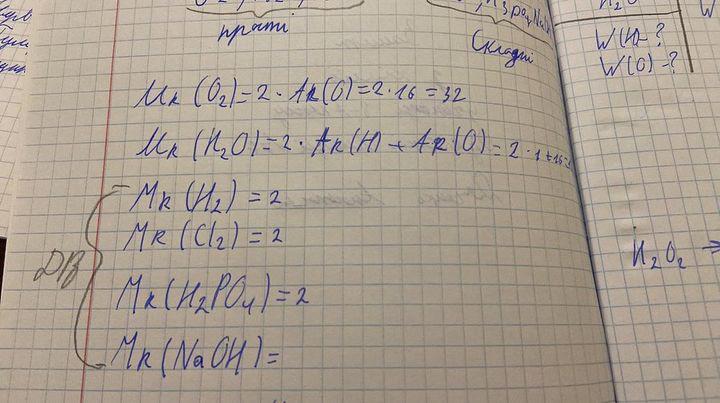 прості
Складні
H₂O
W(H)-?
W(O)-?
Mr(O₂)=2·Ar(O)=2·16=32
Mr(H₂O)=2·Ar(H)+Ar(O)=2·1+16=
Mr(H₂)=2
Mr(Cl₂)=2
ДЗ
Mr(H₂PO₄)=2
Mr(NaOH)=
H₂O₂ →